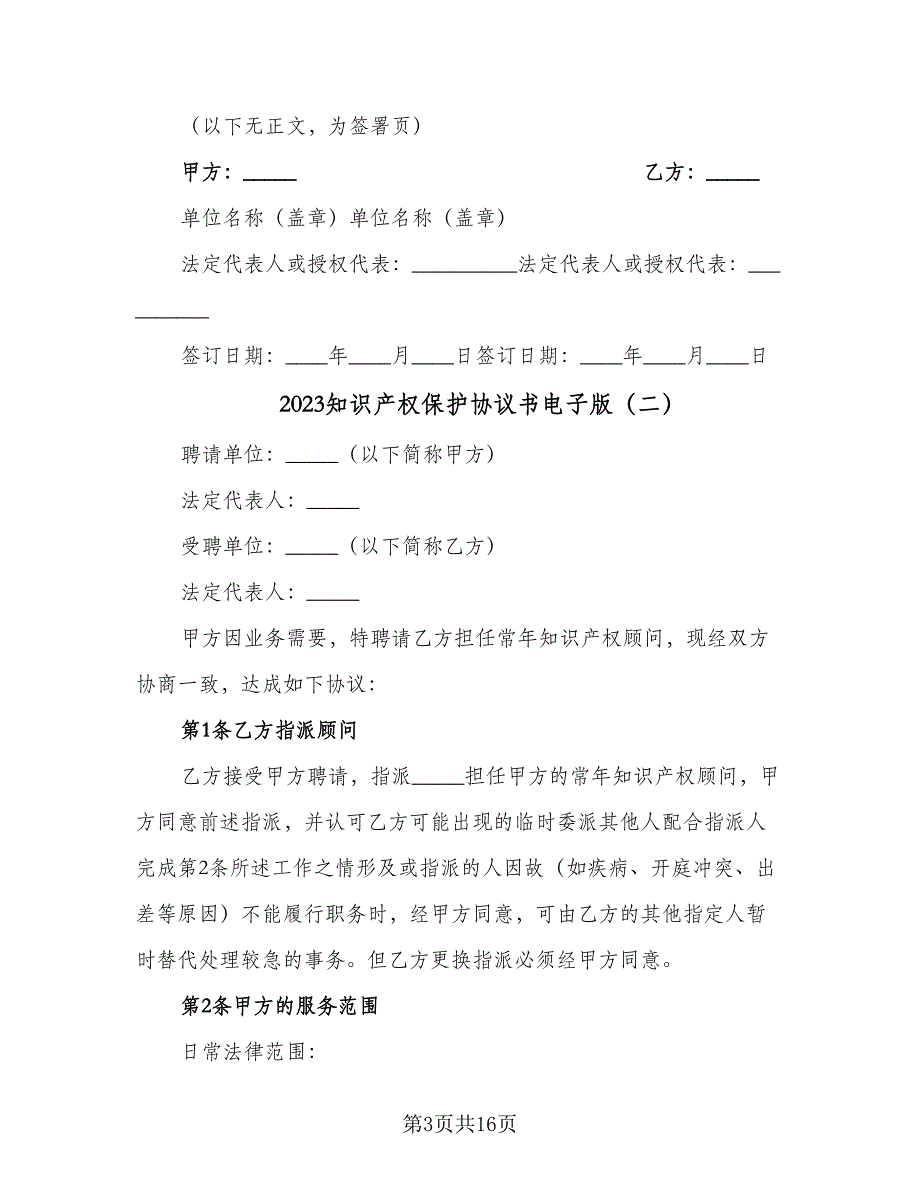 （以下无正文，为签署页）
甲方：_____ 乙方：_____
单位名称（盖章）单位名称（盖章）
法定代表人或授权代表：__________法定代表人或授权代表：___
_______
签订日期：____年____月____日签订日期：____年____月____日
2023知识产权保护协议书电子版（二）
聘请单位：_____（以下简称甲方）
法定代表人：_____
受聘单位：_____（以下简称乙方）
法定代表人：_____
甲方因业务需要，特聘请乙方担任常年知识产权顾问，现经双方
协商一致，达成如下协议：
第1条乙方指派顾问
乙方接受甲方聘请，指派_____担任甲方的常年知识产权顾问，甲
方同意前述指派，并认可乙方可能出现的临时委派其他人配合指派人
完成第2条所述工作之情形及或指派的人因故（如疾病、开庭冲突、出
差等原因）不能履行职务时，经甲方同意，可由乙方的其他指定人暂
时替代处理较急的事务。但乙方更换指派必须经甲方同意。
第2条甲方的服务范围
日常法律范围：
第3页共16页